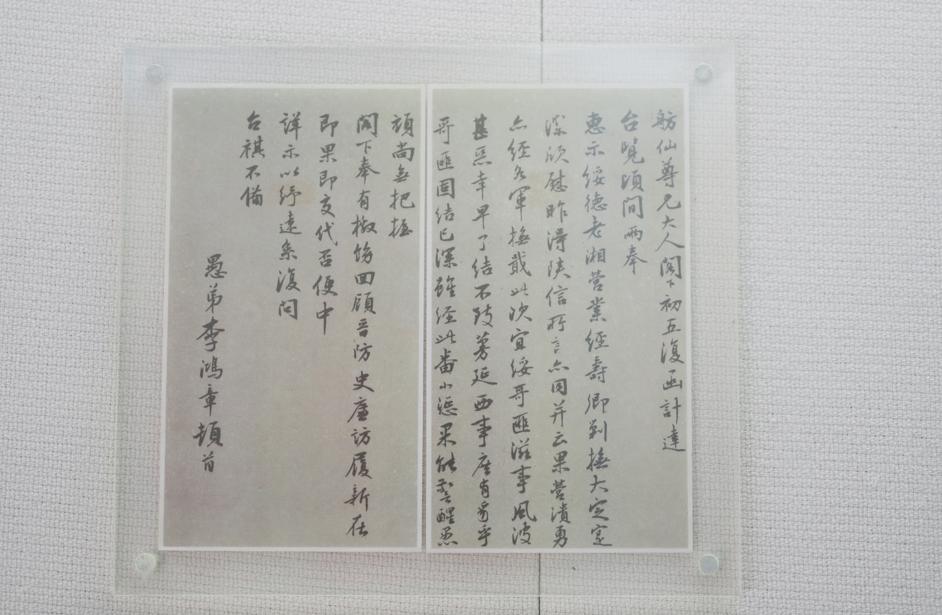 舫仙尊兄大人閣下初五復函計達
台覽頃間兩奉
惠示綏德老湘營業經壽卿剿撫大定定
深欣慰昨得陝信所言亦同并云果營潰勇
亦經各軍撫戢此次宜綏哥匪滋事風波
甚惡幸早了結不致蔓延西事庶有豸乎
哥匪固結已深雖經此番小懲果能警醒愚
頑尚無把握
閣下奉有檄飭回顧晉防史庫訪履新在
即果即交代否便中
詳示以紓遠系復問
台祺不備
愚弟李鴻章頓首